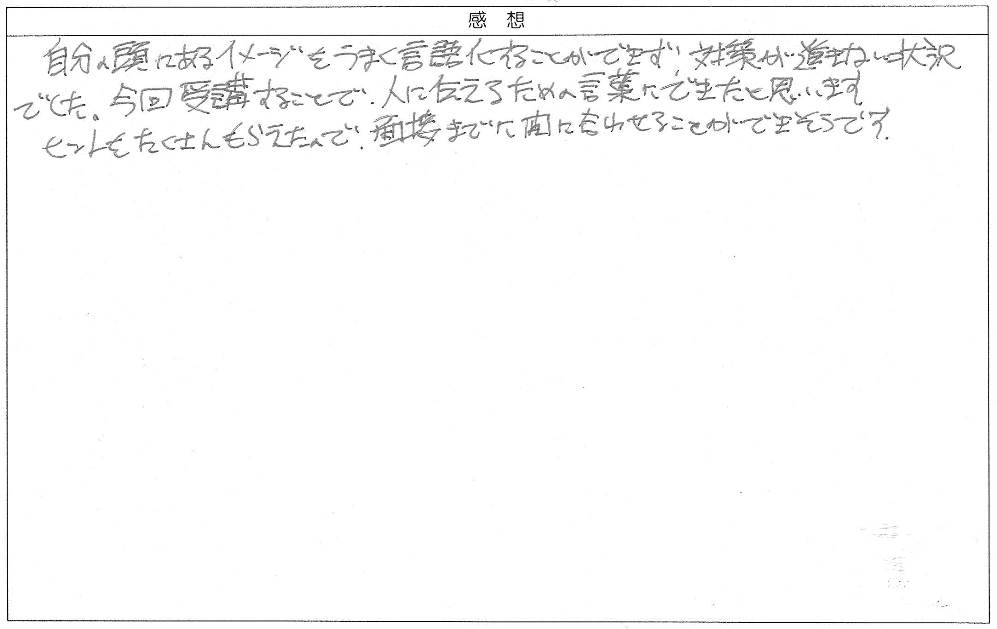 感想
自分の頭にあるイメージをうまく言語化することができず、対策が進まない状況
でした。今回受講することで、人に伝えるための言葉にできたと思います
ヒントをたくさんもらえたので、面接までに間に合わせることができそうです。